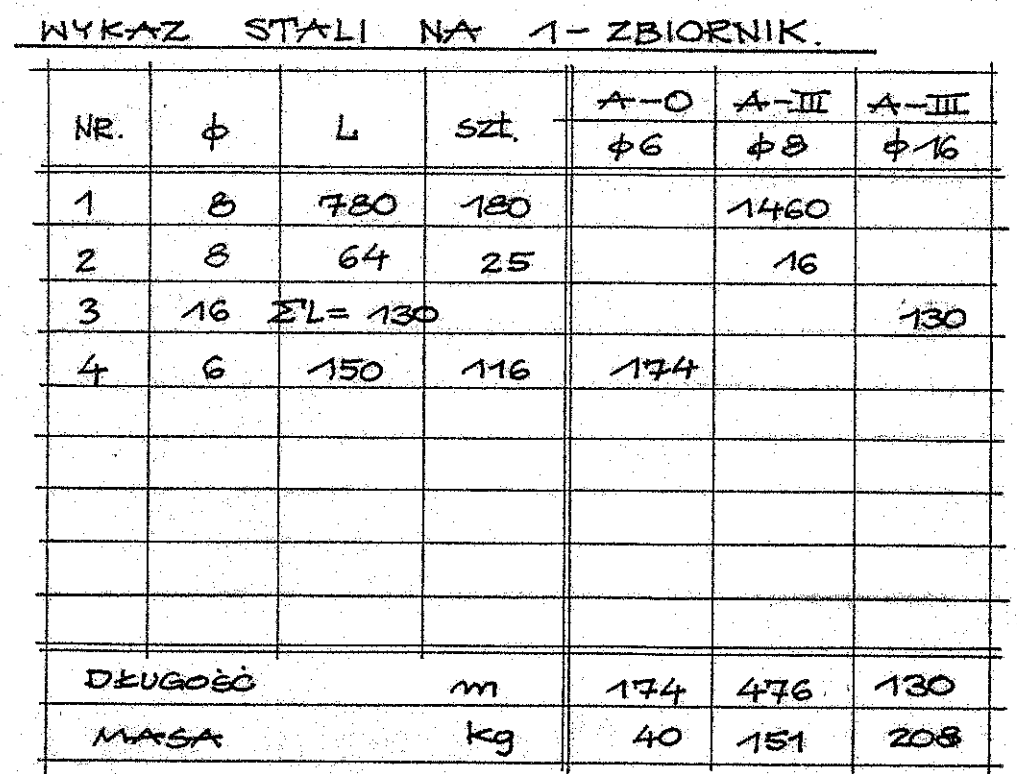 WYKAZ STALI NA 1-ZBIORNIK.
NR. ϕ L szt. A-0 A-III A-III
ϕ6 ϕ8 ϕ16
1 8 780 180 1460
2 8 64 25 16
3 16 ΣL= 130 130
4 6 150 116 174
DŁUGOŚĆ m 174 476 130
MASA kg 40 151 208